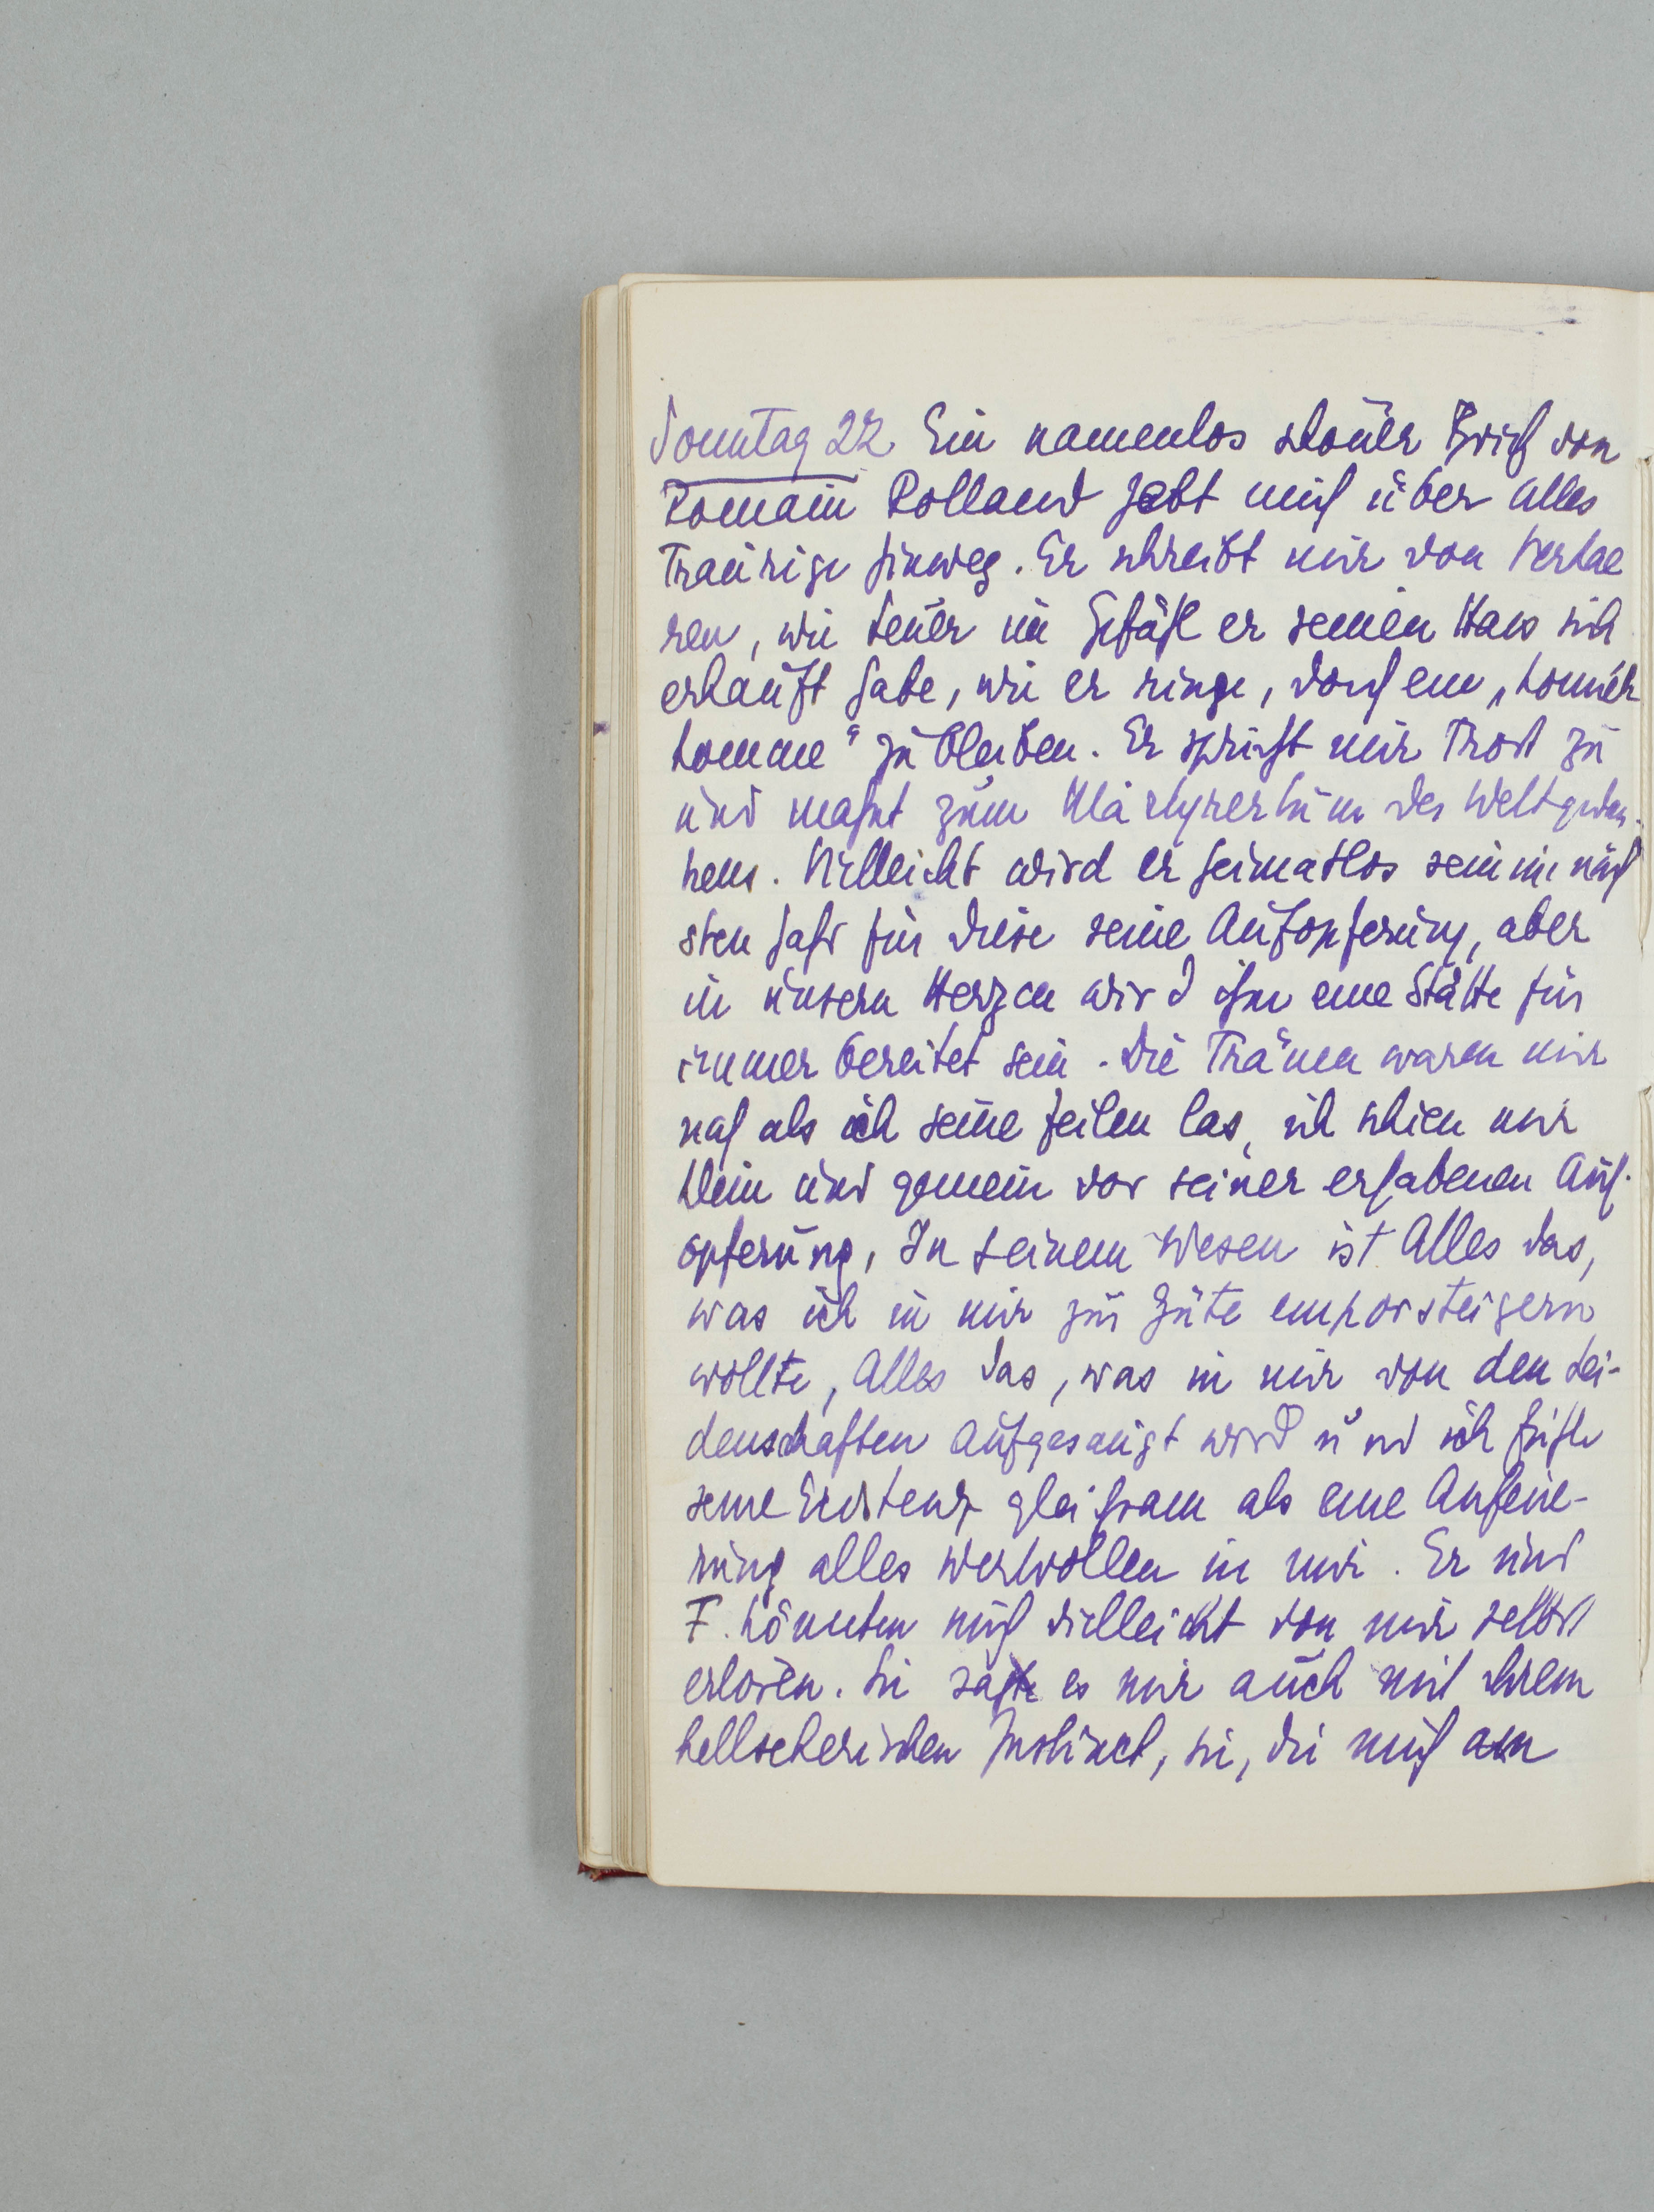 Sonntag 22 Ein namenlos schöner Brief von
Romain Rolland hebt mich über alles
Traurige hinweg. Er schreibt mir von Verhae
ren, wie teuer im Gefühl er seinen Hass sich
erkauft habe, wie er ringe, doch ein „honnête
homme“ zu bleiben. Er spricht mir Trost zu
und mahnt zum Märtyrertum des Weltgedan-
kens. Vielleicht wird er heimatlos sein im näch
sten Jahr für diese seine Aufopferung, aber
in unsern Herzen wird ihm eine Stätte für
immer bereitet sein. Die Tränen waren mir
nah als ich seine Zeilen las, ich schien mir
klein und gemein vor seiner erhabenen Auf-
opferung, In seinem Wesen ist Alles das,
was ich in mir zur Güte emporsteigern
wollte, Alles das, was in mir von den Lei-
denschaften aufgesaugt wird und ich fühle
seine Existenz gleichsam als eine Anfeue-
rung alles wertvollen in mir. Er und
F. könnten mich vielleicht von mir selbst
erlösen. Sie sagte es mir auch mit ihrem
hellseherischen Instinct, sie, die mich am